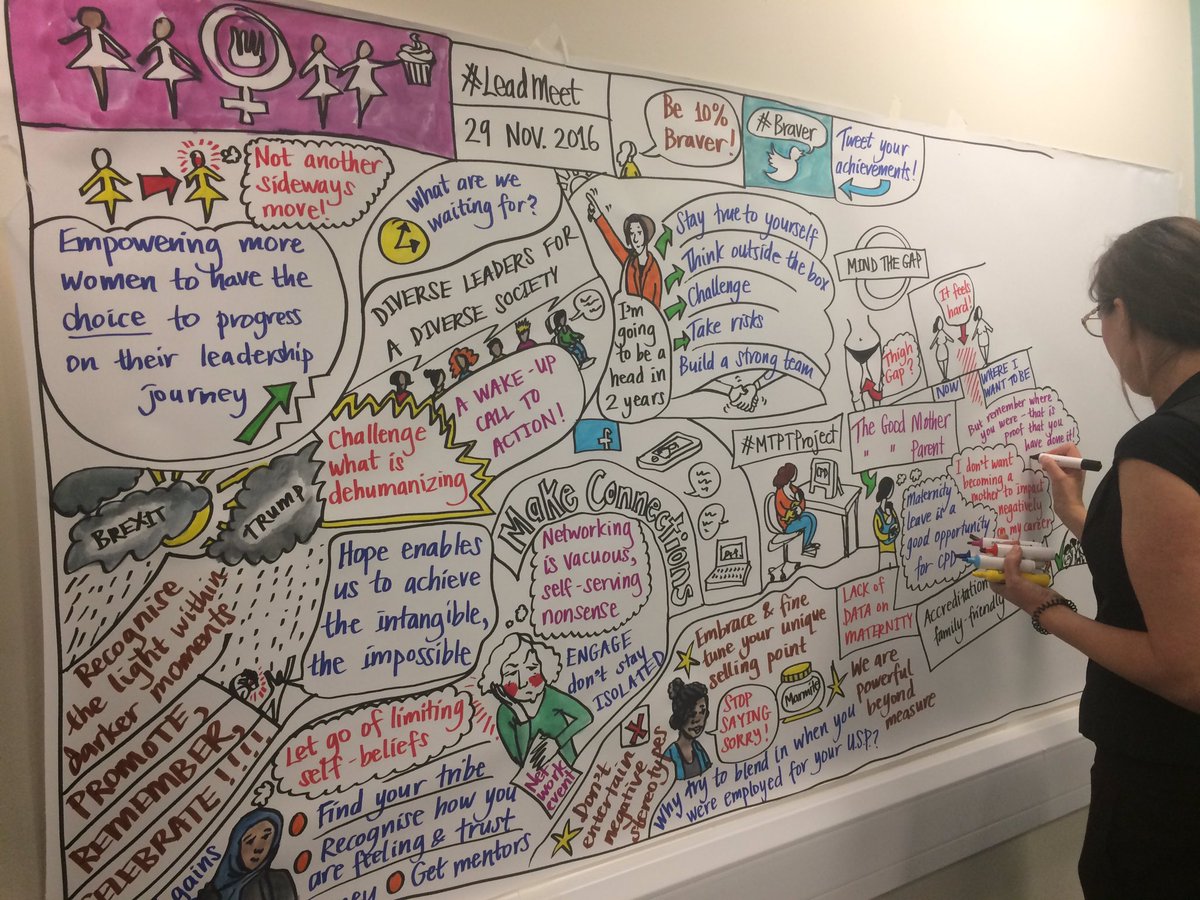 #LeadMeet
29 NOV. 2016
Be 10%
Braver!
#Braver
Tweet your
achievements!
Not another
sideways
move!
Empowering more
women to have the
choice to progress
on their leadership
journey
What are we
waiting for?
DIVERSE LEADERS FOR
A DIVERSE SOCIETY
A WAKE-UP
CALL TO
ACTION!
Challenge
what is
dehumanizing
I'm
going
to be a
head in
2 years
Stay true to yourself
Think outside the box
Challenge
Take risks
Build a strong team
MIND THE GAP
Thigh
Gap?
It feels
hard!
NOW
WHERE I
WANT TO BE
But remember where
you were - that is
proof that you
have done it!
#MTPTProject
The Good Mother
" " Parent
CPD
Maternity
leave is a
good opportunity
for CPD
I don't want
becoming a
mother to impact
negatively
on my career
LACK OF
DATA ON
MATERNITY
Accreditation
family-friendly
BREXIT
TRUMP
Recognise
the light within
darker moments
PROMOTE,
REMEMBER,
CELEBRATE!!!!
Hope enables
us to achieve
the intangible,
the impossible
f
Make Connections
Networking
is vacuous,
self-serving
nonsense
ENGAGE
don't stay
ISOLATED
Network
event
Let go of limiting
self-beliefs
Find your tribe
Recognise how you
are feeling & trust
Get mentors
gains
Embrace & fine
tune your unique
selling point
STOP
SAYING
SORRY!
Marmite
We are
powerful
beyond
measure
Don't
entertain
negative
stereotypes
Why try to blend in when you
were employed for your U.S.P.?